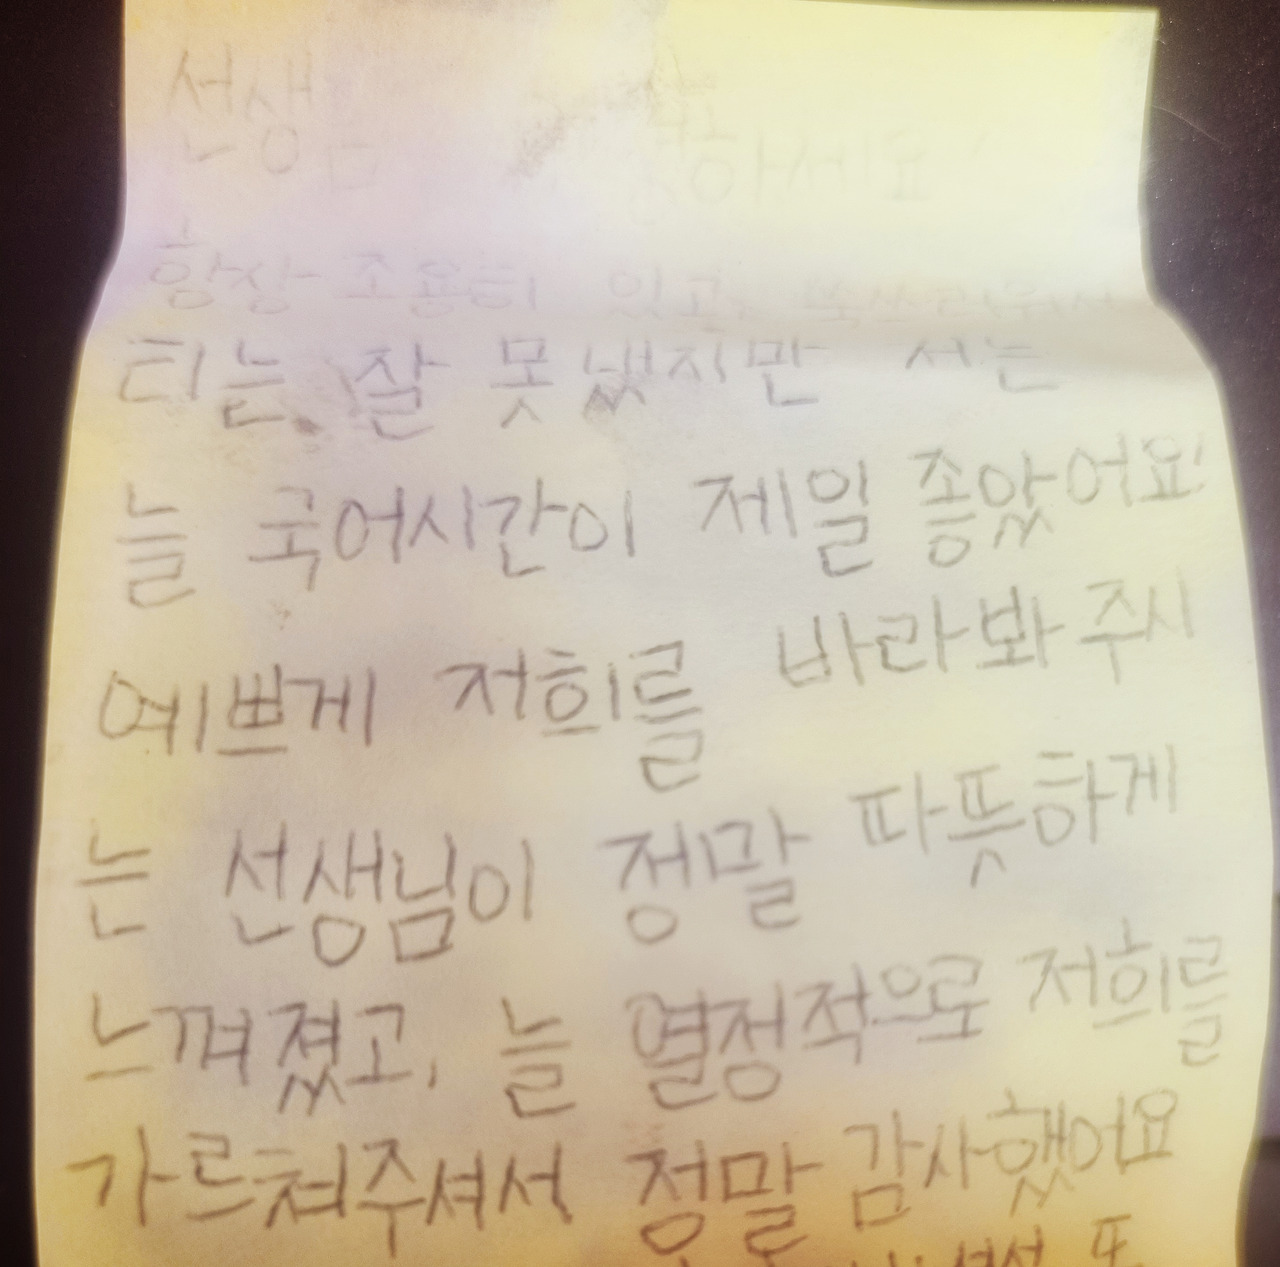 선생님 하세요
항상 조용히 있고, 쑥쓰러워서
티는 잘 못냈지만 저는
늘 국어시간이 제일 좋았어요!
예쁘게 저희를 바라봐주시
는 선생님이 정말 따뜻하게
느껴졌고, 늘 열정적으로 저희를
가르쳐주셔서 정말 감사했어요